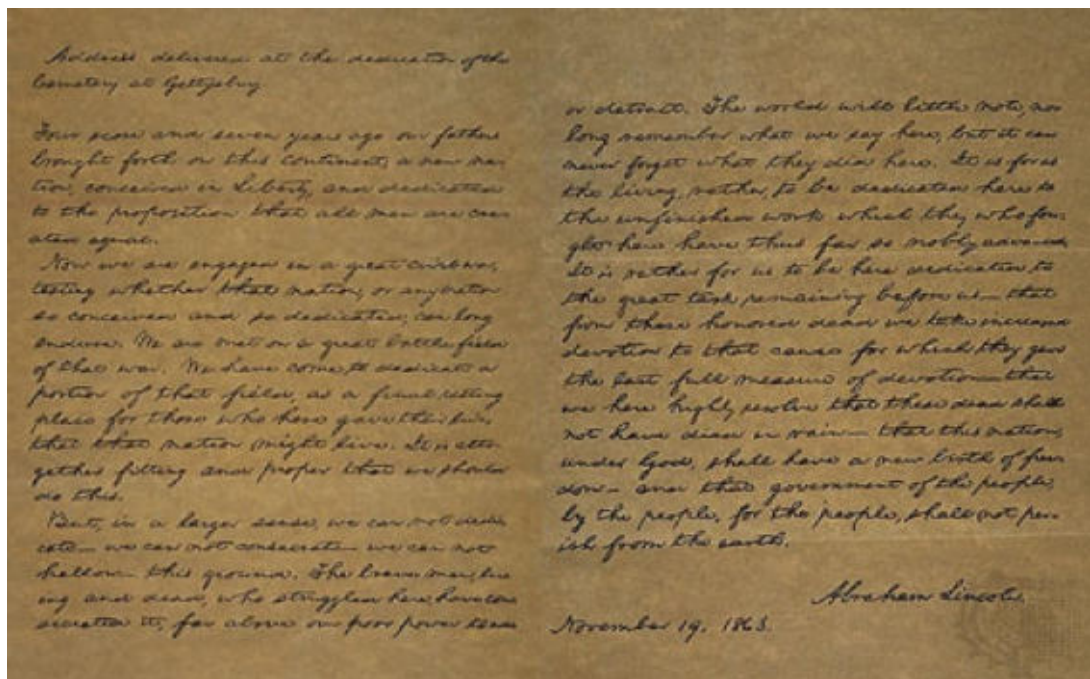 Address delivered at the dedication of the
Cemetery at Gettysburg.
Four score and seven years ago our fathers
brought forth on this continent, a new na-
tion, conceived in Liberty, and dedicated
to the proposition that all men are cre-
ated equal.
Now we are engaged in a great civil war,
testing whether that nation, or any nation
so conceived and so dedicated, can long
endure. We are met on a great battle field
of that war. We have come to dedicate a
portion of that field, as a final resting
place for those who here gave their lives,
that that nation might live. It is alto-
gether fitting and proper that we should
do this.
But, in a larger sense, we can not dedi-
cate— we can not consecrate— we can not
hallow— this ground. The brave men, liv-
ing and dead, who struggled here, have con-
secrated it, far above our poor power to add
or detract. The world will little note, nor
long remember what we say here, but it can
never forget what they did here. It is for us
the living, rather, to be dedicated here to
the unfinished work which they who fou-
ght here have thus far so nobly advanced.
It is rather for us to be here dedicated to
the great task remaining before us— that
from these honored dead we take increased
devotion to that cause for which they gave
the last full measure of devotion— that
we here highly resolve that these dead shall
not have died in vain— that this nation,
under God, shall have a new birth of free-
dom— and that government of the people,
by the people, for the people, shall not per-
ish from the earth.
Abraham Lincoln.
November 19, 1863.